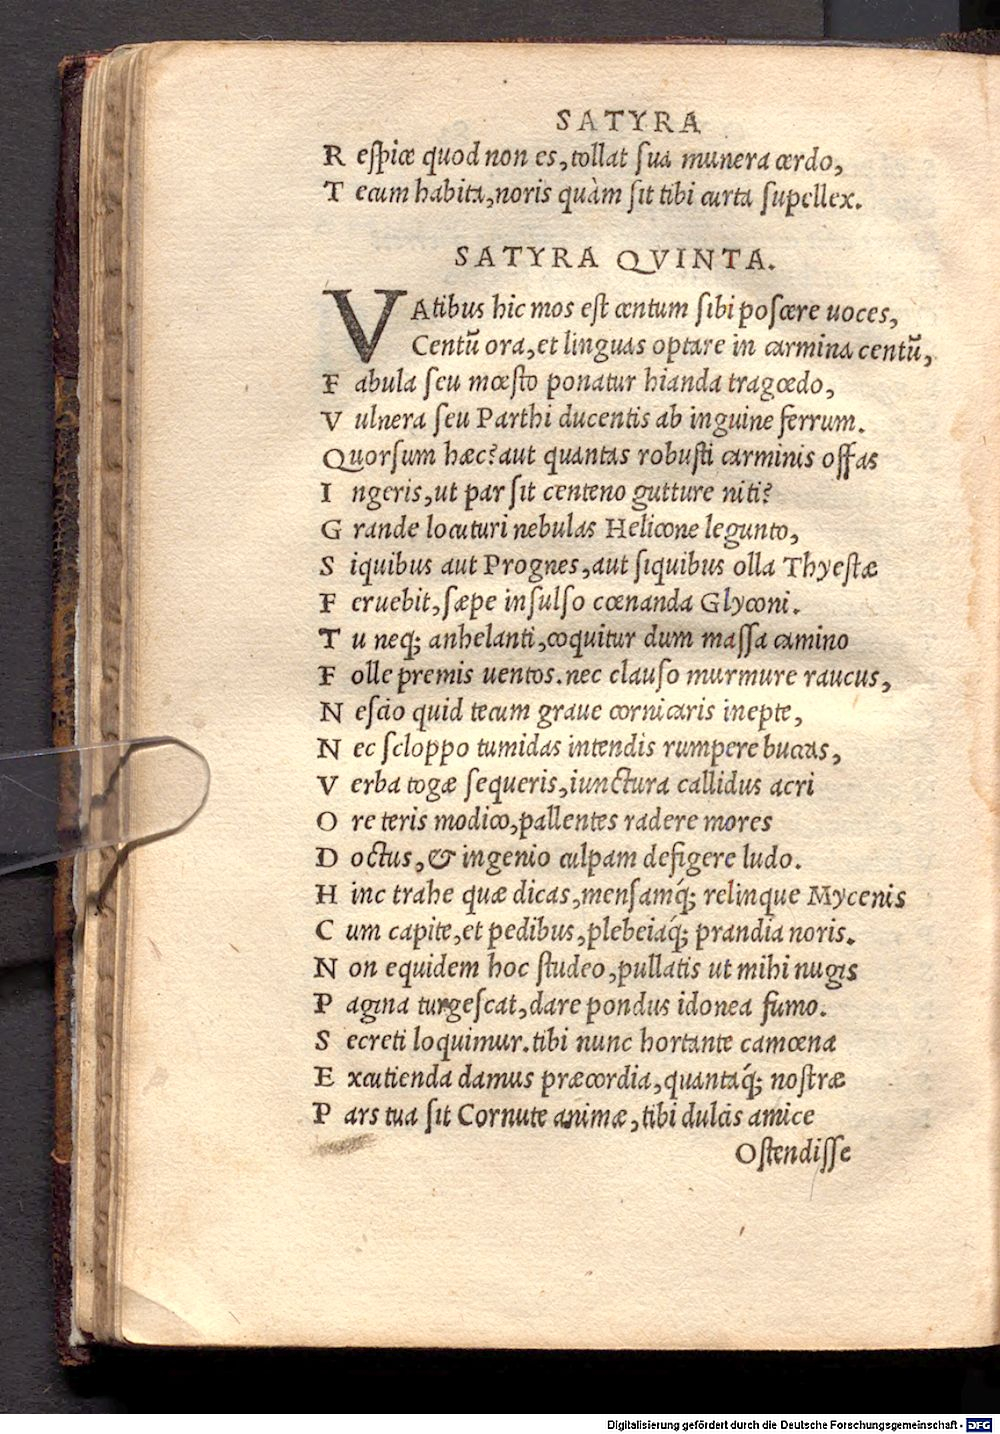 SATYRA
Respice quod non es, tollat sua munera cerdo,
Tecum habita, noris quàm sit tibi curta supellex.
SATYRA QVINTA.
VAtibus hic mos est centum sibi poscere uoces,
Centũ ora, et linguas optare in carmina centũ,
Fabula seu mœsto ponatur hianda tragœdo,
Vulnera seu Parthi ducentis ab inguine ferrum.
Quorsum hæc? aut quantas robusti carminis offas
Ingeris, ut par sit centeno gutture niti?
Grande locuturi nebulas Helicone legunto,
Siquibus aut Prognes, aut siquibus olla Thyestæ
Feruebit, sæpe insulso cœnanda Glyconi.
Tu neq; anhelanti, coquitur dum massa camino
Folle premis uentos. nec clauso murmure raucus,
Nescio quid tecum graue cornicaris inepte,
Nec scloppo tumidas intendis rumpere buccas,
Verba togæ sequeris, iunctura callidus acri
Ore teris modico, pallentes radere mores
Doctus, & ingenio culpam defigere ludo.
Hinc trahe quæ dicas, mensamq́; relinque Mycenis
Cum capite, et pedibus, plebeiaq́; prandia noris.
Non equidem hoc studeo, pullatis ut mihi nugis
Pagina turgescat, dare pondus idonea fumo.
Secreti loquimur. tibi nunc hortante camœna
Excutienda damus præcordia, quantaq́; nostræ
Pars tua sit Cornute animæ, tibi dulcis amice
Ostendisse
Digitalisierung gefördert durch die Deutsche Forschungsgemeinschaft - DFG